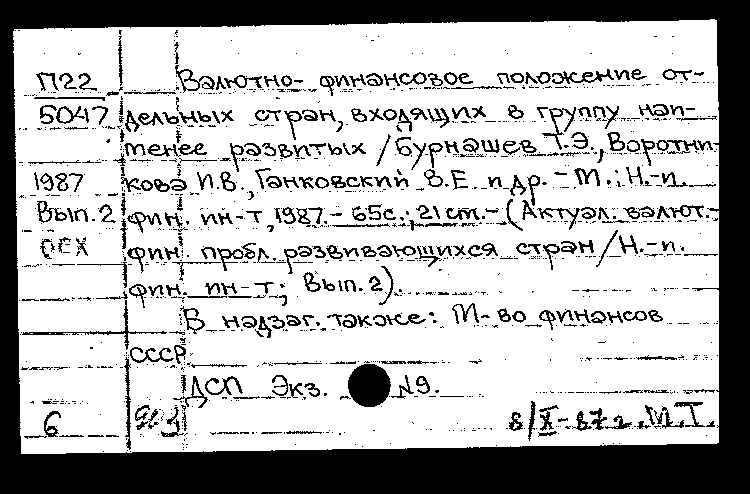 П22 Валютно-финансовое положение от-
5047 дельных стран, входящих в группу наи-
менее развитых / Бурнашев Т.Э., Воротни-
1987 кова И.В., Ганковский В.Е и др. - М.: Н.-и.
Вып. 2 фин. ин-т, 1987. - 65с.; 21 см. - (Актуал. валют.-
РЕХ фин. пробл. развивающихся стран / Н.-и.
фин. ин-т; Вып. 2).
В надзаг. также: М-во финансов
СССР
ДСП Экз. №9.
6 903 8/X-87 г. М.Т.